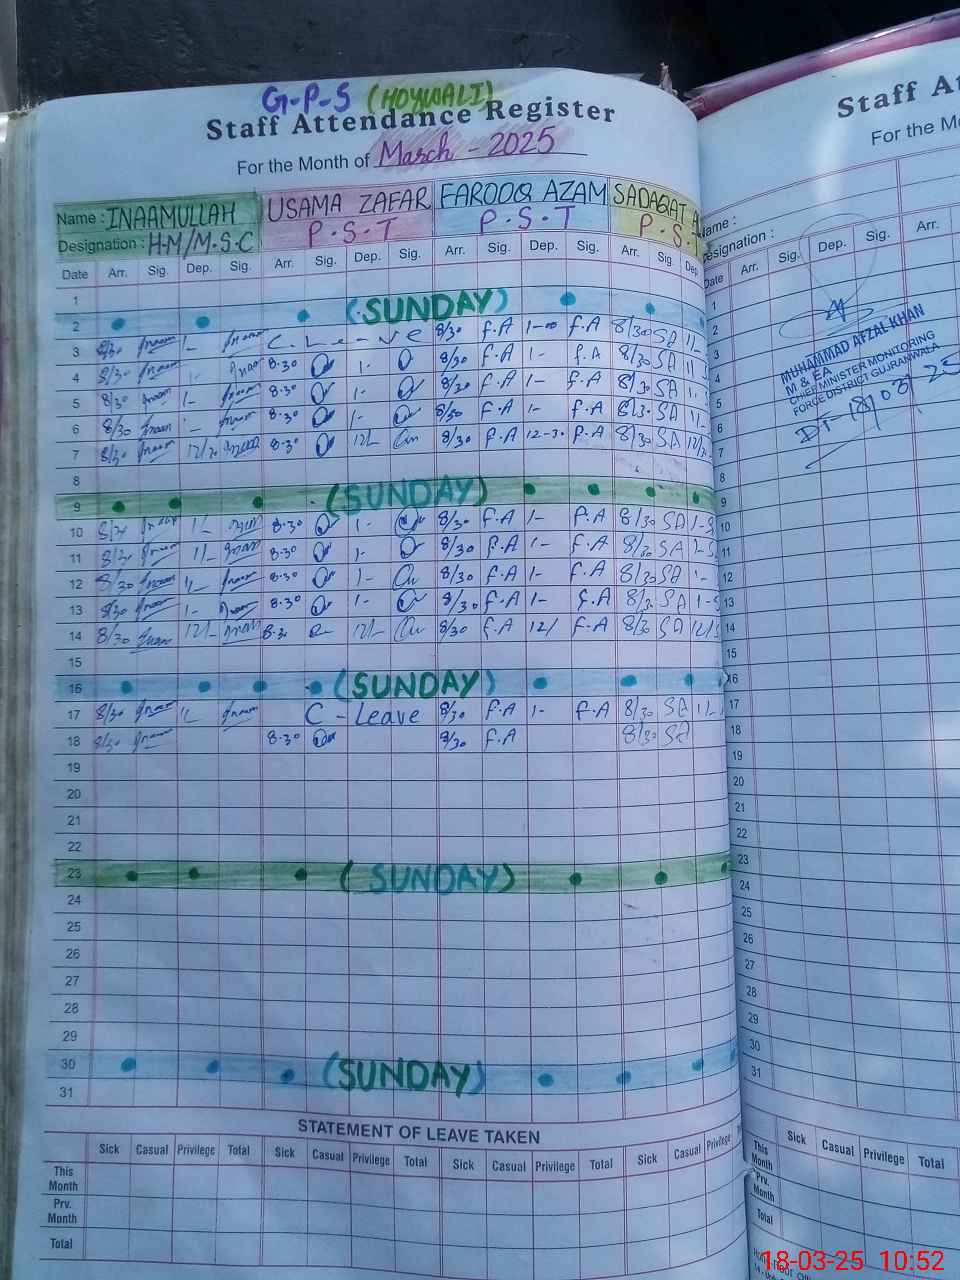 G-P-S (HOYWALI)
Staff Attendance Register
For the Month of March - 2025
Name : INAAMULLAH USAMA ZAFAR FAROOQ AZAM SADAQAT
Designation : H.M/M.S.C P.S.T P.S.T P.S.
Date Arr. Sig. Dep. Sig. Arr. Sig. Dep. Sig. Arr. Sig. Dep. Sig. Arr. Sig. Dep
1
2 (SUNDAY)
3 8/30 1- C. Leave 8/30 F.A 1-00 F.A 8/30 SA
4 8/30 1- 8.30 1- 8/30 F.A 1- F.A 8/30 SA
5 8/30 1- 8.30 1- 8/30 F.A 1- F.A 8/30 SA
6 8/30 8.30 1- 8/30 F.A 1- F.A 8/30 SA
7 8/30 12/30 8.30 12/- 8/30 F.A 12-30 F.A 8/30 SA
8
9 (SUNDAY)
10 8/30 1/- 8.30 1- 8/30 F.A 1- F.A 8/30 SA
11 8/30 1/- 8.30 1- 8/30 F.A 1- F.A 8/30 SA
12 8/30 8.30 1- 8/30 F.A 1- F.A 8/30 SA
13 8/30 1- 8.30 1- 8/30 F.A 1- F.A 8/30 SA
14 8/30 12/- 8.30 12/- 8/30 F.A 12/ F.A 8/30 SA
15
16 (SUNDAY)
17 8/30 C - Leave 8/30 F.A 1- F.A 8/30 SA
18 8/30 8.30 8/30 F.A 8/30 SA
19
20
21
22
23 (SUNDAY)
24
25
26
27
28
29
30 (SUNDAY)
31
STATEMENT OF LEAVE TAKEN
Sick Casual Privilege Total Sick Casual Privilege Total Sick Casual Privilege Total Sick Casual Privilege
This Month
Prv. Month
Total
Staff At
For the Mo
Name :
Designation :
Date Arr. Sig. Dep. Sig. Arr.
1
2
3
MUHAMMAD AFZAL KHAN
M & EA
CHIEF MINISTER MONITORING
FORCE DISTRICT GUJRANWALA
DT 18/03/25
4
5
6
7
8
9
10
11
12
13
14
15
16
17
18
19
20
21
22
23
24
25
26
27
28
29
30
31
Sick Casual Privilege Total
This Month
Prv. Month
Total
18-03-25 10:52